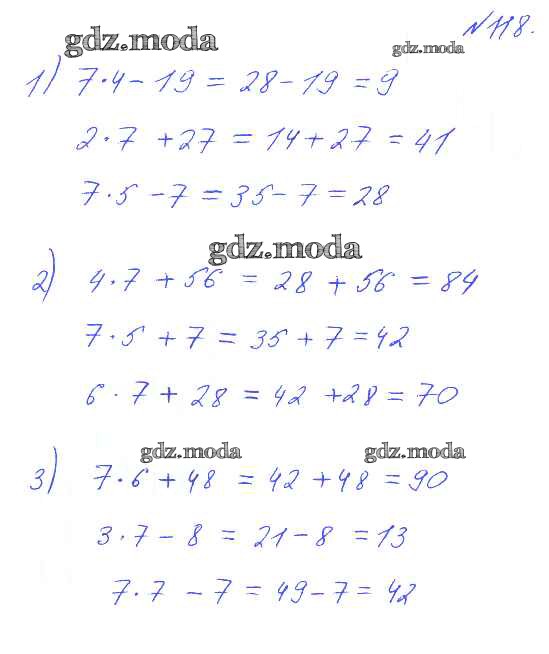 №118.
gdz.moda
gdz.moda
1) 7·4-19 = 28-19 = 9
2·7 +27 = 14+27 = 41
7·5 -7 = 35-7 = 28
gdz.moda
2) 4·7 +56 = 28 +56 = 84
7·5 +7 = 35 +7 = 42
6·7 + 28 = 42 +28 = 70
gdz.moda gdz.moda
3) 7·6 +48 = 42 +48 = 90
3·7 - 8 = 21-8 = 13
7·7 -7 = 49-7 = 42